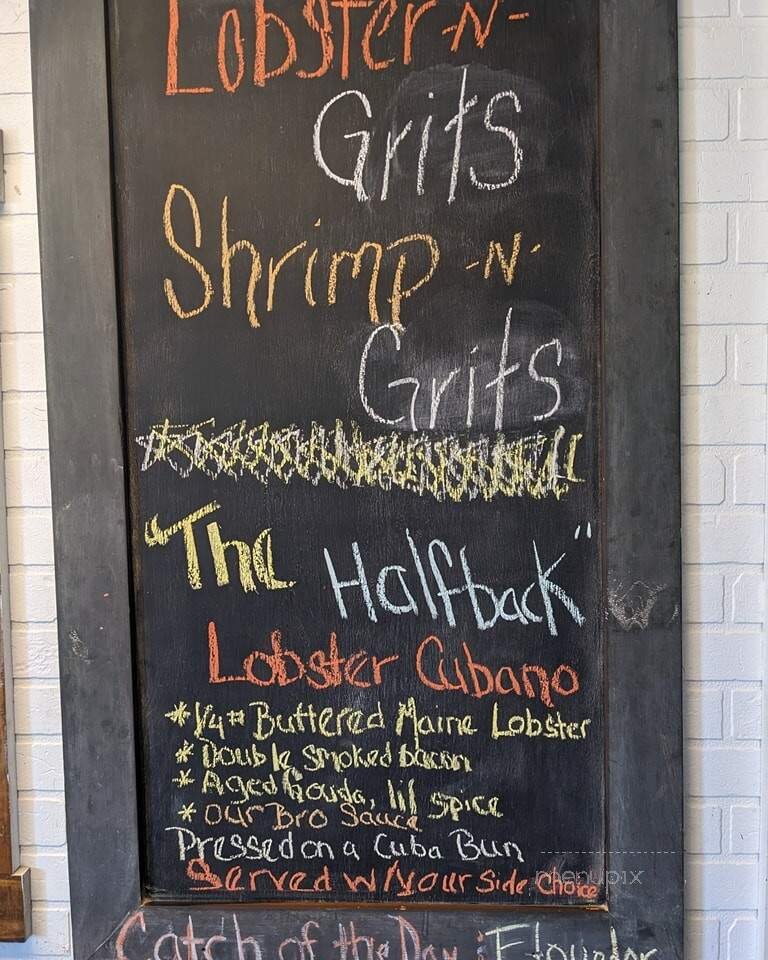 Lobster -N-
Grits
Shrimp -N-
Grits
"The Halfback"
Lobster Cubano
* 1/4# Buttered Maine Lobster
* Double smoked bacon
* Aged Gouda, lil spice
* Our Bro Sauce
Pressed on a Cuba Bun
Served w/your Side Choice
menupix
Catch of the Day: Flounder